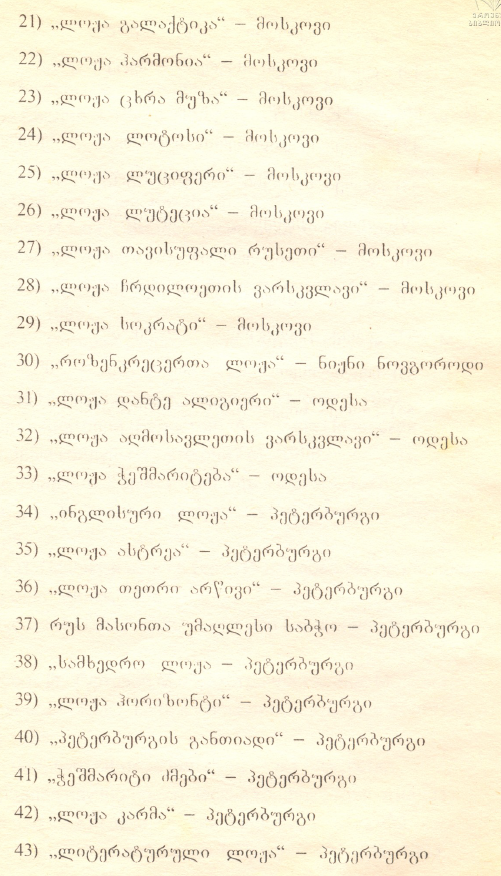 21) „ლოჟა გალაქტიკა“ – მოსკოვი
22) „ლოჟა ჰარმონია“ – მოსკოვი
23) „ლოჟა ცხრა მუზა“ – მოსკოვი
24) „ლოჟა ლოტოსი“ – მოსკოვი
25) „ლოჟა ლუციფერი“ – მოსკოვი
26) „ლოჟა ლუტეცია“ – მოსკოვი
27) „ლოჟა თავისუფალი რუსეთი“ – მოსკოვი
28) „ლოჟა ჩრდილოეთის ვარსკვლავი“ – მოსკოვი
29) „ლოჟა სოკრატი“ – მოსკოვი
30) „როზენკრეცერთა ლოჟა“ – ნიჟნი ნოვგოროდი
31) „ლოჟა დანტე ალიგიერი“ – ოდესა
32) „ლოჟა აღმოსავლეთის ვარსკვლავი“ – ოდესა
33) „ლოჟა ჭეშმარიტება“ – ოდესა
34) „ინგლისური ლოჟა“ – პეტერბურგი
35) „ლოჟა ასტრეა“ – პეტერბურგი
36) „ლოჟა თეთრი არწივი“ – პეტერბურგი
37) რუს მასონთა უმაღლესი საბჭო – პეტერბურგი
38) „სამხედრო ლოჟა – პეტერბურგი
39) „ლოჟა ჰორიზონტი“ – პეტერბურგი
40) „პეტერბურგის განთიადი“ – პეტერბურგი
41) „ჭეშმარიტი ძმები“ – პეტერბურგი
42) „ლოჟა კარმა“ – პეტერბურგი
43) „ლიტერატურული ლოჟა“ – პეტერბურგი